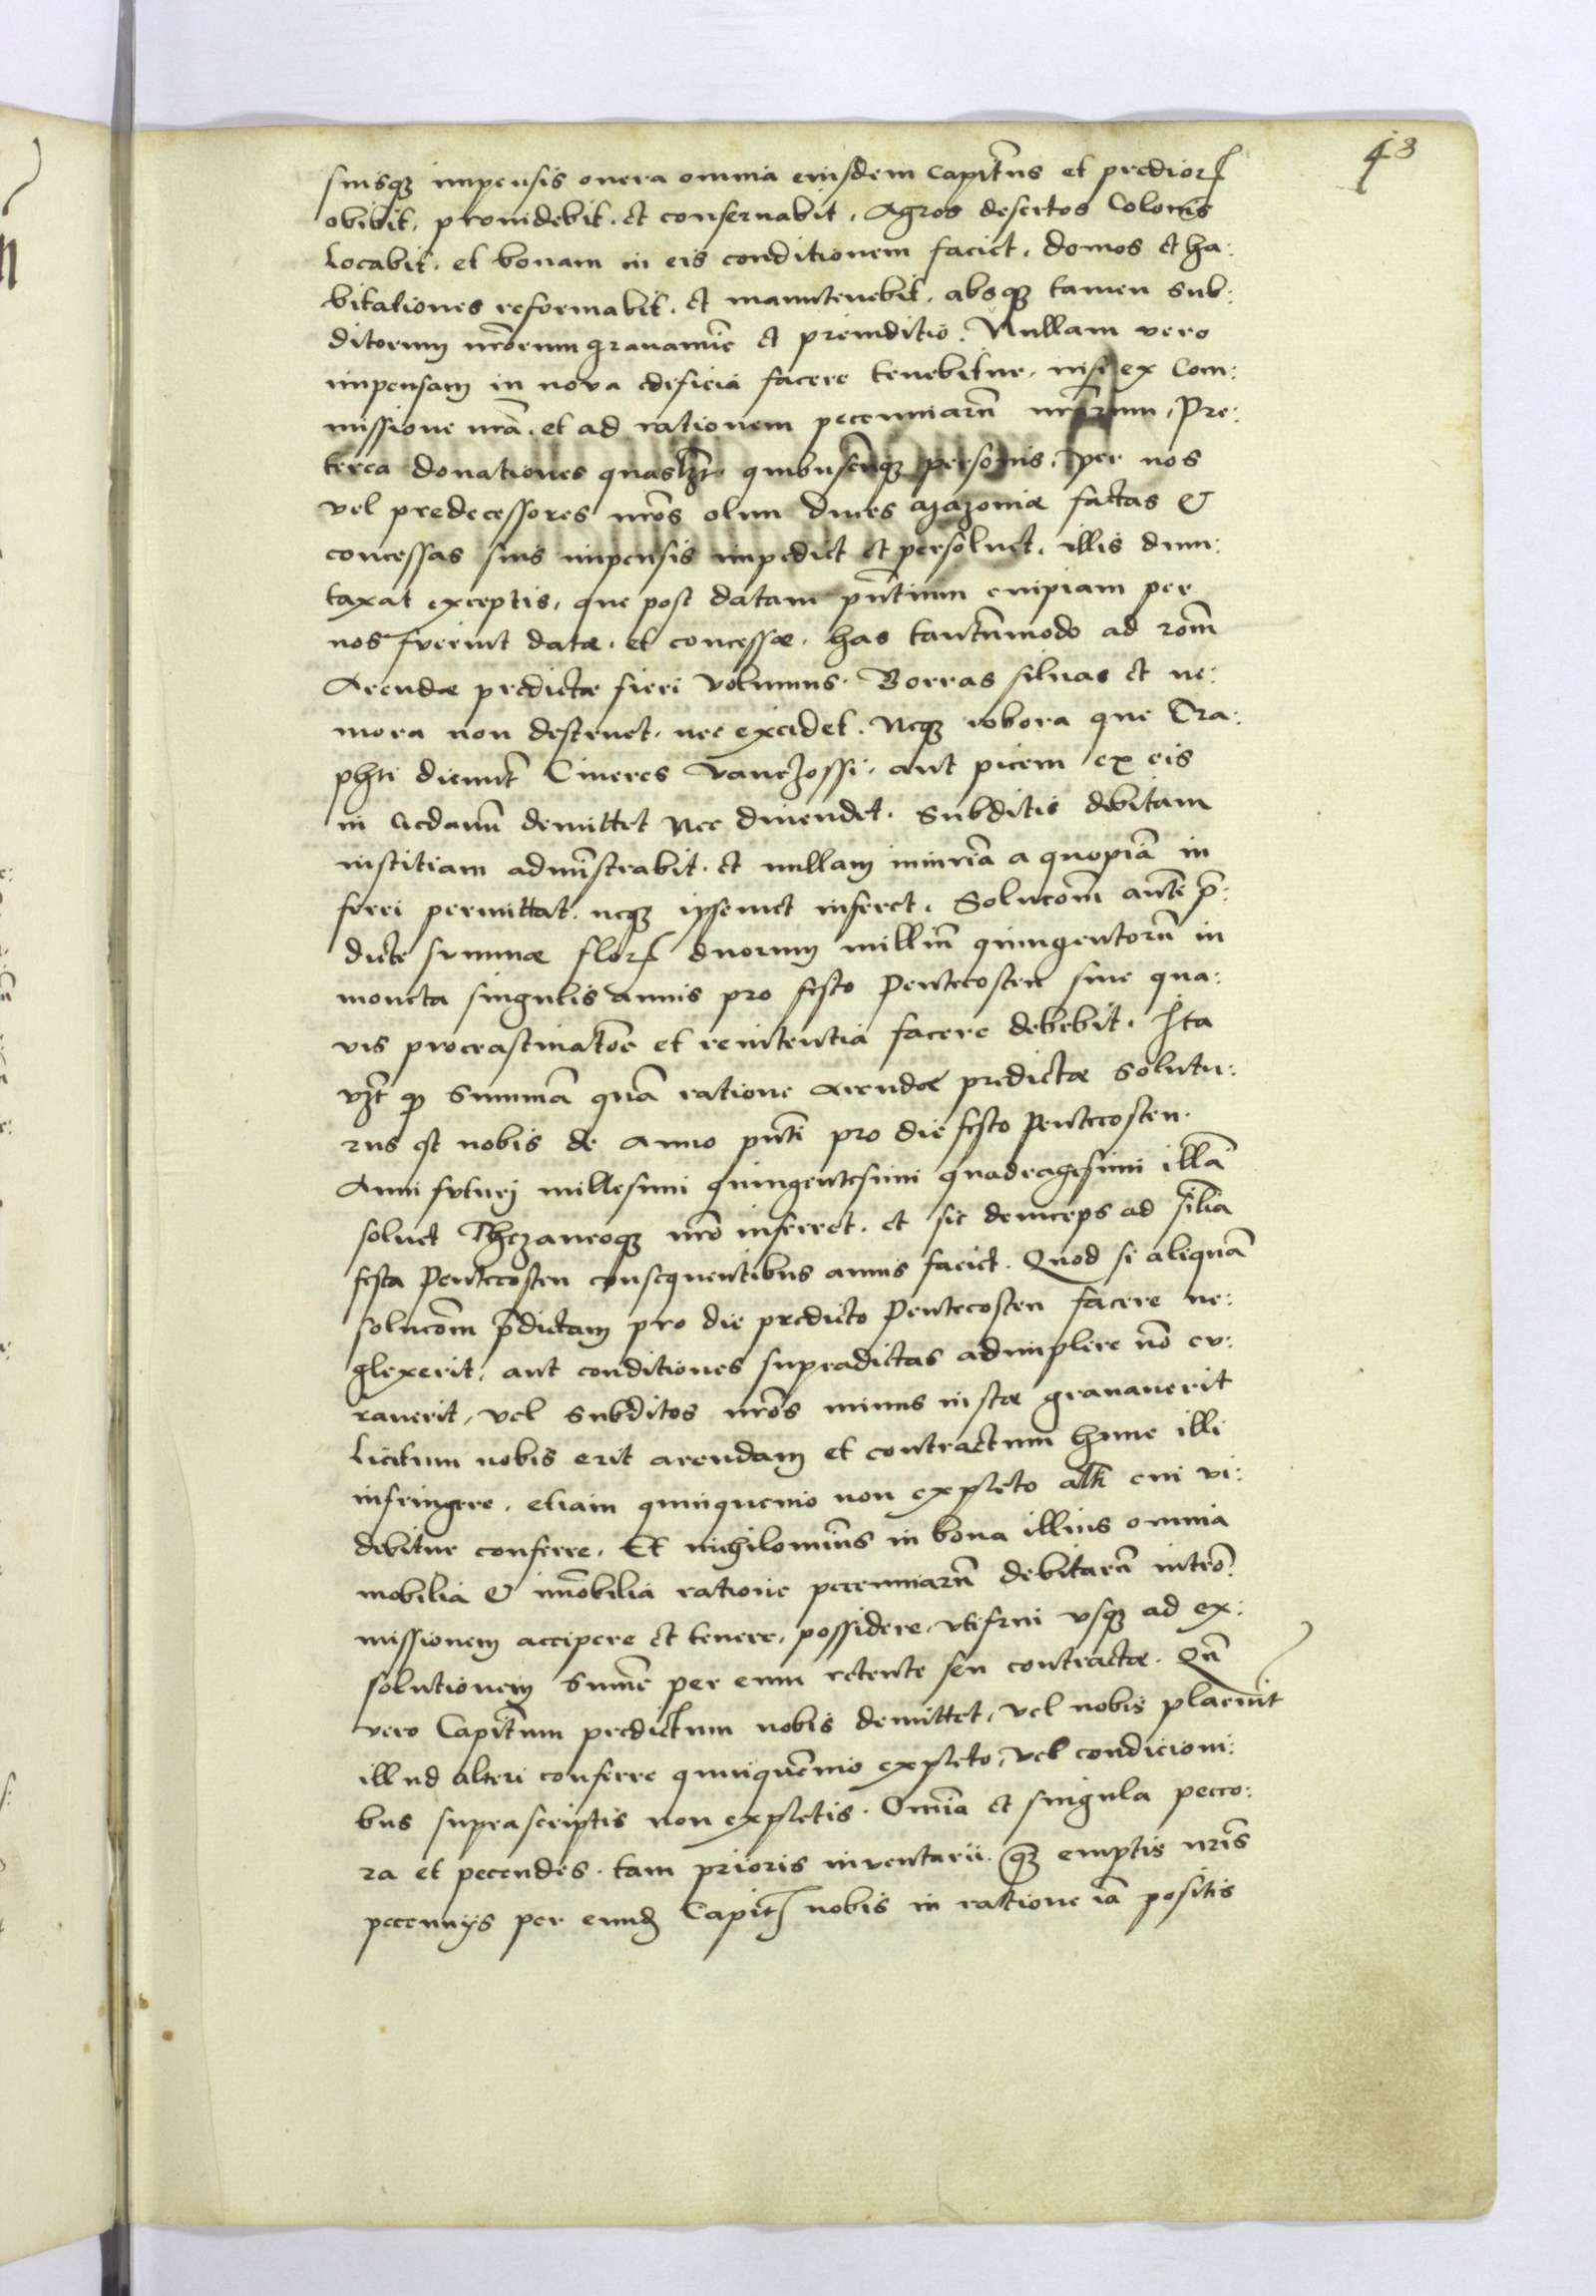 48
suisqȝ impensis onera omnia eiusdem Capit̃nus et predior̃
obibit, prouidebit, et conseruabit, Agros desertos Colonis
locabit, et bonam in eis conditionem faciet, domos et ha:
bitationes reformabit, et manutenebit, absqȝ tamen sub:
ditorum nr̃orum grauamine et preiuditio. Nullam vero
impensam in nova edificia facere tenebitur, nisi ex Com:
missione nr̃a, et ad rationem pecuniarũ nr̃arum, Pre:
terea donationes quaslȝt quibuscũqȝ personis, per nos
vel predecessores nr̃os olim duces Mazoniæ factas &
concessas suis impensis impediet et persoluet, illis dun:
taxat exceptis, que post datam pñtium cuipiam per
nos fuerint datæ, et concessæ, has tantũmodo ad rõm
Arendæ predictæ fieri volumus. Borras siluas et ne:
mora non destruet, nec excidet. Neqȝ robora que Tra:
phti dicunt Cineres Vanczossi, aut picem ex eis
in Gedanũ demittet Nec diuendet. Subditis debitam
iustitiam admĩstrabit, et nullam iniuriã a quopiã in
ferri permittat, neqȝ ipsemet inferet. Solucõm aũte p̃:
dicte summæ flor̃ duorum milliũ quingentorũ in
moneta singulis annis pro festo Pentecosten sine qua:
vis procrastinatõe et renitentia facere debebit. Ita
vȝt qȝ Summã quã ratione Arendæ predictæ Solutu:
rus est nobis de Anno pñti pro die festo Pentecosten.
Anni futurj millesimi quingentesimi quadragesimi illã
soluet Thezauroqȝ nr̃o inferret, et sic deinceps ad sĩlia
festa Pentecosten consequentibus annis faciet. Quod si aliquã
solucõm p̃dictam pro die predicto Pentecosten facere ne:
glexerit, aut conditiones supradictas adimplere nõ cu:
rauerit, vel Subditos nr̃os minus iustæ grauauerit
licitum nobis erit arendam et contractum hunc illi
infringere, etiam quinquenio non expleto alti cui vi:
debitur conferre, Et nichilomĩus in bona illius omnia
mobilia & im̃obilia ratione pecuniarũ debitarũ intro̅:
missionem accipere et tenere, possidere, vtifrui vsqȝ ad ex:
solutionem Sum̃e per eum retente seu contractæ. Qñ
vero Capit̃num predictum nobis demittet, vel nobis placuit
illud alteri conferre quinquẽnio expleto, vel condicioni:
bus suprascriptis non expletis. Om̃ia et singula pecco:
ra et peccudes, tam prioris inventarii, qȝ emptis nr̃is
pecunijs per eund̃ Capit̃ nobis in ratione iã positis